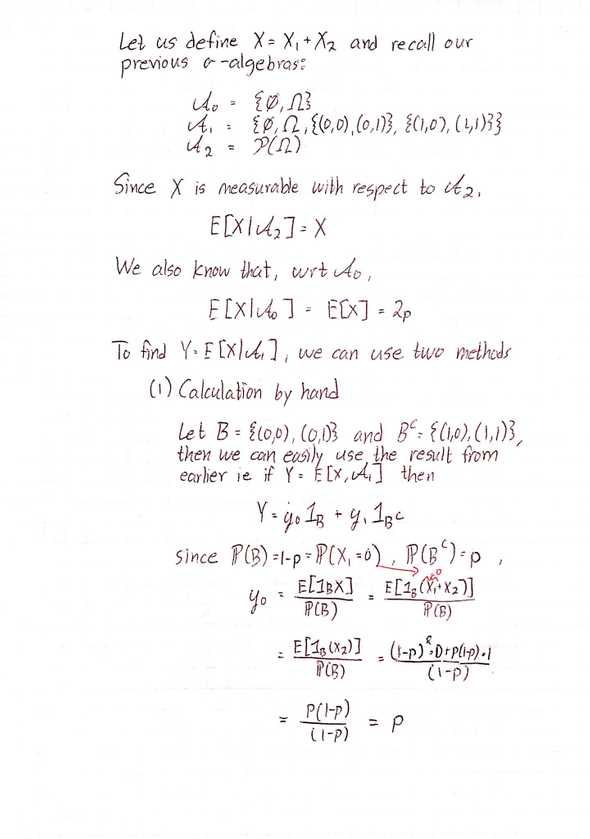 Let us define X = X₁ + X₂ and recall our
previous σ-algebras:
𝒜₀ = {∅, Ω}
𝒜₁ = {∅, Ω, {(0,0), (0,1)}, {(1,0), (1,1)}}
𝒜₂ = P(Ω)
Since X is measurable with respect to 𝒜₂,
E[X|𝒜₂] = X
We also know that, wrt 𝒜₀,
E[X|𝒜₀] = E[X] = 2p
To find Y = E[X|𝒜₁], we can use two methods
(1) Calculation by hand
Let B = {(0,0), (0,1)} and Bᶜ = {(1,0), (1,1)},
then we can easily use the result from
earlier ie if Y = E[X, 𝒜₁] then
Y = y₀ 𝟙_B + y₁ 𝟙_Bᶜ
since ℙ(B) = 1-p = ℙ(X₁ = 0), ℙ(Bᶜ) = p ,
y₀ = E[𝟙_B X] / ℙ(B) = E[𝟙_B (X₁ + X₂)] / ℙ(B)
0
= E[𝟙_B (X₂)] / ℙ(B) = ((1-p)²·0 + p(1-p)·1) / (1-p)
= P(1-p) / (1-p) = p